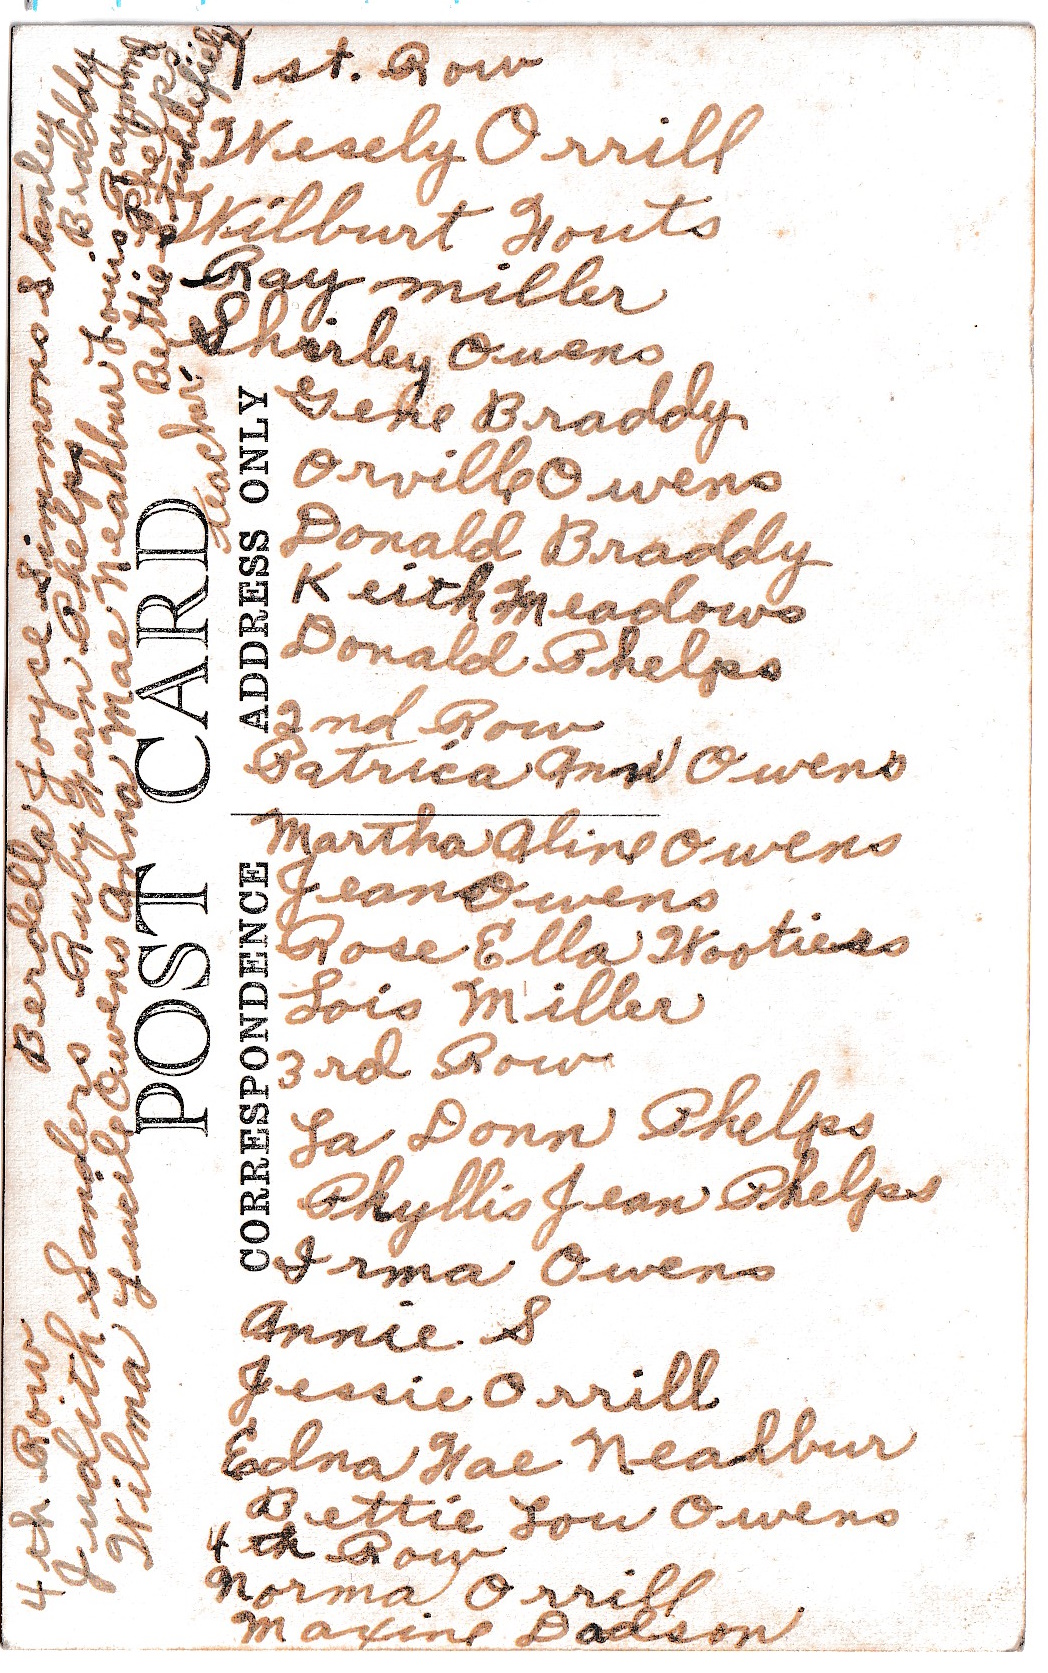 1st. Row
Wesely Orrill
Wilburt Fouts
Ray Miller
Shirley Owens
Gene Braddy
Orville Owens
Donald Braddy
Keith Meadows
Donald Phelps
2nd Row
Patrica Ann Owens
Martha Aline Owens
Jean Owens
Rose Ella Wootiess
Lois Miller
3rd Row
La Donn Phelps
Phyllis Jean Phelps
Irma Owens
Annie S
Jessie Orrill
Edna Fae Neahbur
Bettie Lou Owens
4th Row
Norma Orrill
Maxine Dodson
4th Row. Berdella Joyce Simmons Stanley
Judith Sanders Ruby Fern Phelps Braddy
Wilma Lucile Owens Anna Mae Neahbur Louis Raymond
Bettie Phelps
teacher.
POST CARD
CORRESPONDENCE ADDRESS ONLY